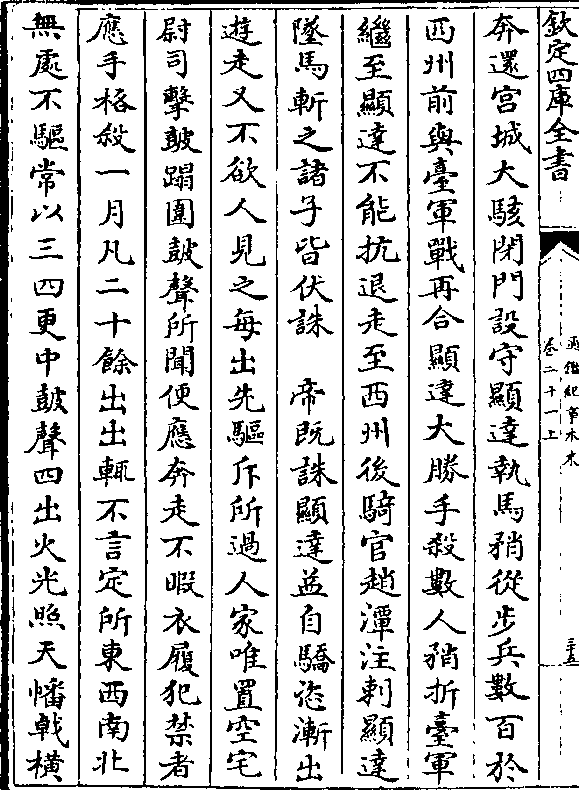 欽定四庫全書
通鑑紀事本末
卷二十一上
三十五
奔還宫城大駭閉門設守顯達執馬矟從步兵數百於
西州前與臺軍戰再合顯達大勝手殺數人矟折臺軍
繼至顯達不能抗退走至西州後騎官趙潭注刺顯達
墜馬斬之諸子皆伏誅　帝既誅顯達益自驕恣漸出
遊走又不欲人見之每出先驅斥所過人家唯置空宅
尉司擊鼓蹋圍鼓聲所聞便應奔走不暇衣履犯禁者
應手格殺一月凡二十餘出出輒不言定所東西南北
無處不驅常以三四更中鼓聲四出火光照天幡戟橫